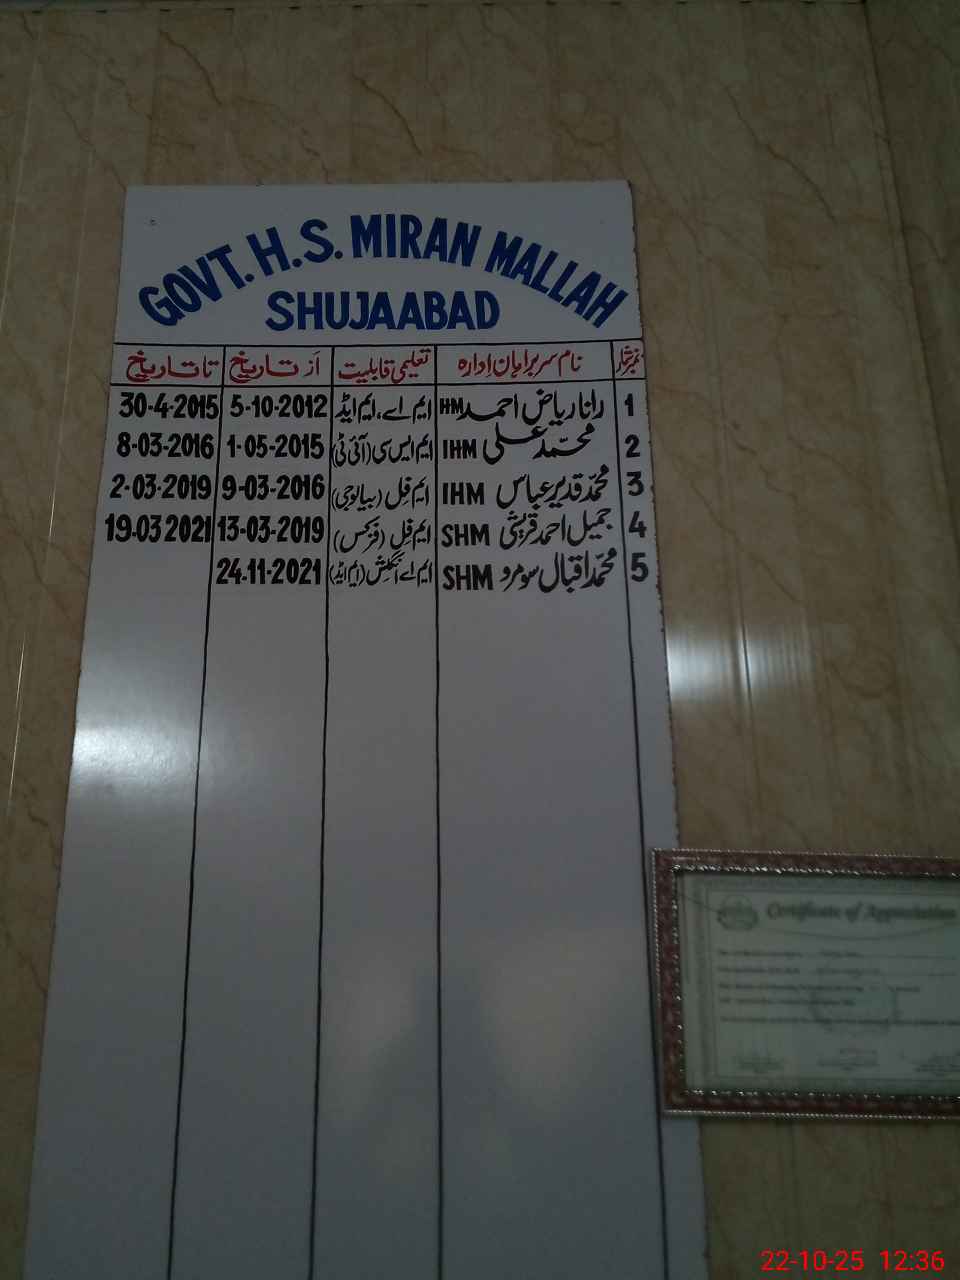 GOVT. H.S. MIRAN MALLAH
SHUJAABAD
نمبرشمار نام سربراہان اِدارہ تعلیمی قابلیت اَز تاریخ تا تاریخ
1 رانا ریاض احمد HM ایم اے، ایم ایڈ 5-10-2012 30-4-2015
2 محمّد علی IHM ایم ایس سی (آئی ٹی) 1-05-2015 8-03-2016
3 محمّد قدیر عباس IHM ایم فِل (بیالوجی) 9-03-2016 2-03-2019
4 جمیل احمد قریشی SHM ایم فِل (فزکس) 13-03-2019 19.03 2021
5 محمّد اقبال سومرو SHM ایم اے انگلش (ایم ایڈ) 24.11-2021
Certificate of Appreciation
22-10-25 12:36